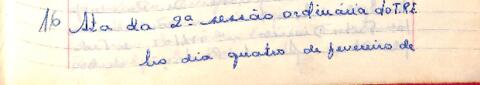 16 Ata da 2ª sessão ordinária do T.R.E.
No dia quatro de fevereiro de